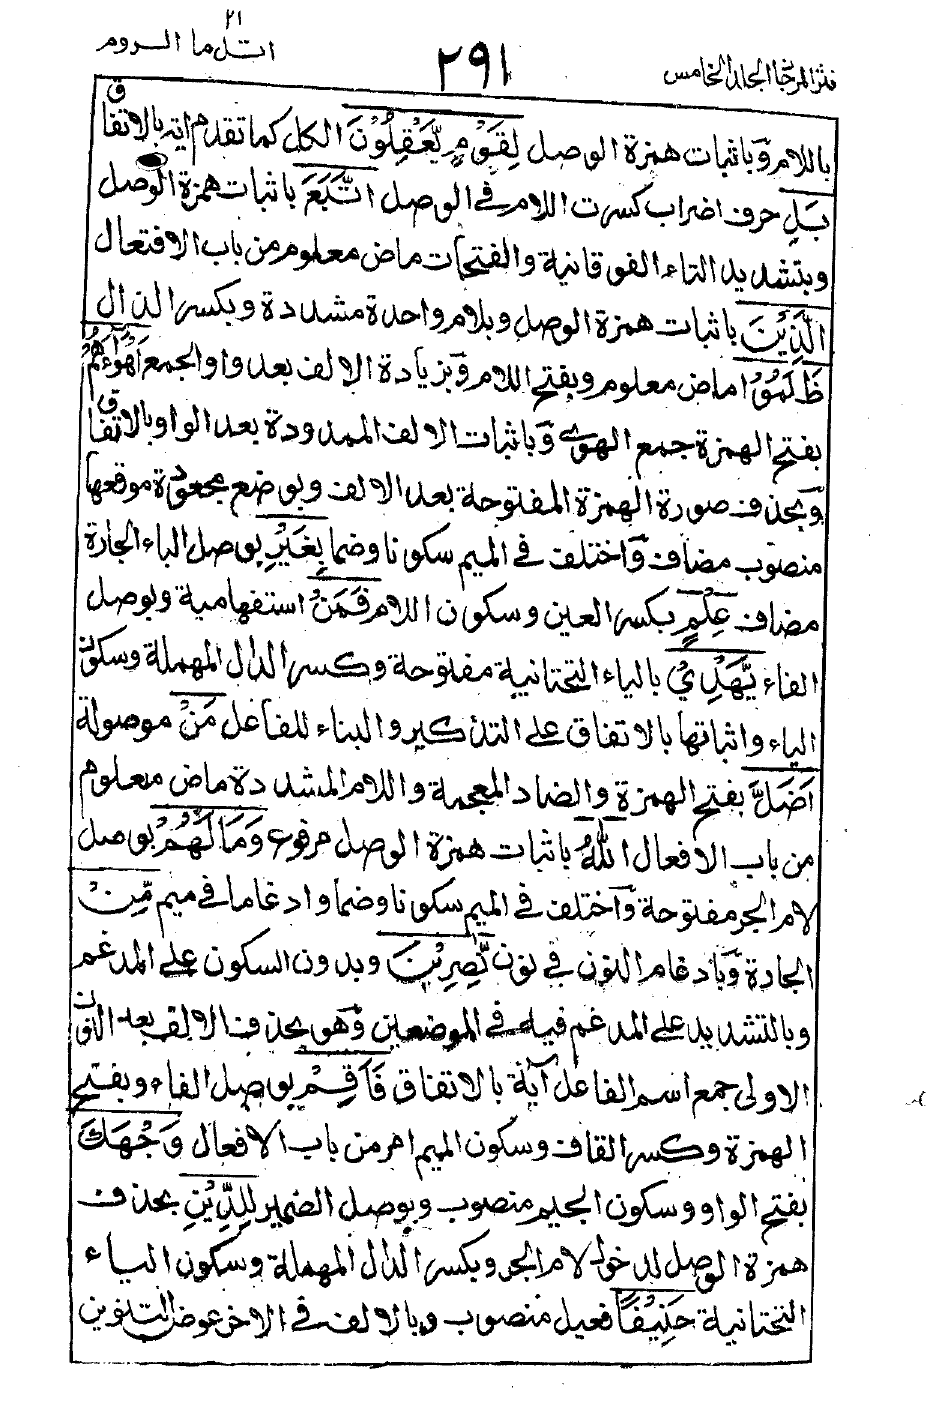 نثر المرجان المجلد الخامس
٢٩١
٢١
اتل ما الروم
باللام وَباثبات همزة الوصل لِقَوْمٍ يَّعْقِلُوْنَ الكل كما تقدم اٰية بالاتفاق
بَلِ حرف اضراب كسرت اللام في الوصل اتَّبَعَ باثبات همزة الوصل
وبتشديد التاء الفوقانية والفتحات ماض معلوم من باب الافتعال
الَّذِيْنَ باثبات همزة الوصل وبلام واحدة مشددة وبكسر الذال
ظَلَمُوْا ماض معلوم وبفتح اللام وَبزيادة الالف بعد واو الجمع اَهْوَآءَهُمْ
بفتح الهمزة جمع الهوى وَباثبات الالف الممدودة بعد الواو بالاتفاق
وَبحذف صورة الهمزة المفتوحة بعد الالف وبوضع مجعودة موقعها
منصوب مضاف وَاختلف في الميم سكونا وضما بِغَيْرِ بوصل الباء الجارة
مضاف عِلْمٍ بكسر العين وسكون اللام فَمَنْ استفهامية وبوصل
الفاء يَّهْدِيْ بالياء التحتانية مفتوحة وكسر الدال المهملة وسكون
الياء واثباتها بالاتفاق على التذكير والبناء للفاعل مَنْ موصولة
اَضَلَّ بفتح الهمزة والضاد المعجمة واللام المشددة ماض معلوم
من باب الافعال اللّٰهُ باثبات همزة الوصل مرفوع وَمَا لَهُمْ بوصل
لام الجر مفتوحة وَاختلف في الميم سكونا وضما وادغاما في ميم مِّنْ
الجارة وَبادغام النون في نون نّٰصِرِيْنَ وبدون السكون على المدغم
وبالتشديد على المدغم فيه في الموضعين وَهو بحذف الالف بعد النون
الاولى جمع اسم الفاعل اٰية بالاتفاق فَاَقِمْ بوصل الفاء وبفتح
الهمزة وكسر القاف وسكون الميم امر من باب الافعال وَجْهَكَ
بفتح الواو وسكون الجيم منصوب وبوصل الضمير لِلدِّيْنِ بحذف
همزة الوصل لدخول لام الجر وبكسر الدال المهملة وسكون الياء
التحتانية حَنِيْفًا فعيل منصوب وبالالف في الاخر عوض التنوين